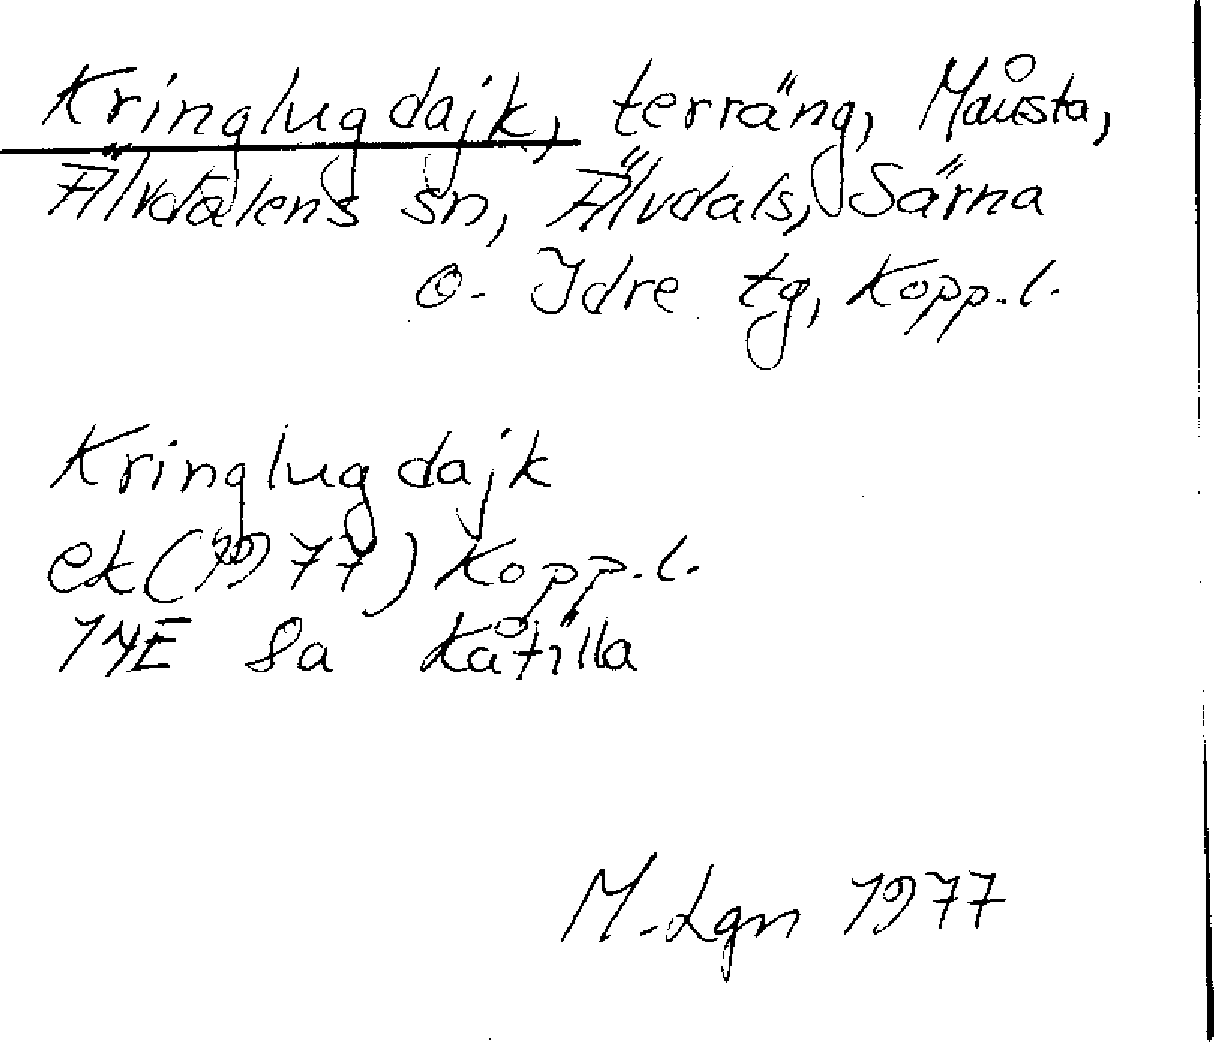 Kringlugdajk, terräng, Måusta,
Älvdalens sn, Älvdals, Särna
o. Idre tg, Kopp.l.
Kringlugdajk
ek (1977) Kopp.l.
14E 8a Kåtilla
M. Lgn 1977